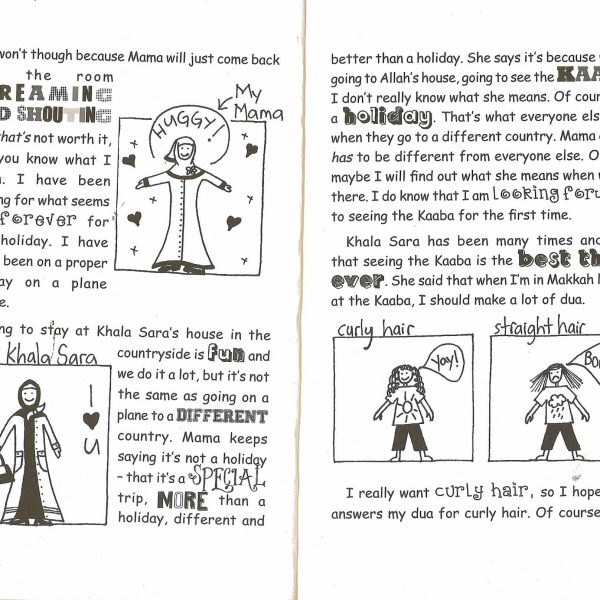 won't though because Mama will just come back
the room
REAMING
D SHOUTING
that's not worth it,
you know what I
. I have been
ng for what seems
forever for
holiday. I have
been on a proper
ay on a plane
e.
My
Mama
HUGGY!
ng to stay at Khala Sara's house in the
Khala Sara
I
U
countryside is fun and
we do it a lot, but it's not
the same as going on a
plane to a DIFFERENT
country. Mama keeps
saying it's not a holiday
– that it's a SPECIAL
trip, MORE than a
holiday, different and
better than a holiday. She says it's because
going to Allah's house, going to see the KAA
I don't really know what she means. Of cour
a holiday. That's what everyone els
when they go to a different country. Mama
has to be different from everyone else. O
maybe I will find out what she means when
there. I do know that I am looking forw
to seeing the Kaaba for the first time.
Khala Sara has been many times and
that seeing the Kaaba is the best th
ever. She said that when I'm in Makkah l
at the Kaaba, I should make a lot of dua.
curly hair
Yay!
straight hair
Bo
I really want curly hair, so I hope
answers my dua for curly hair. Of course